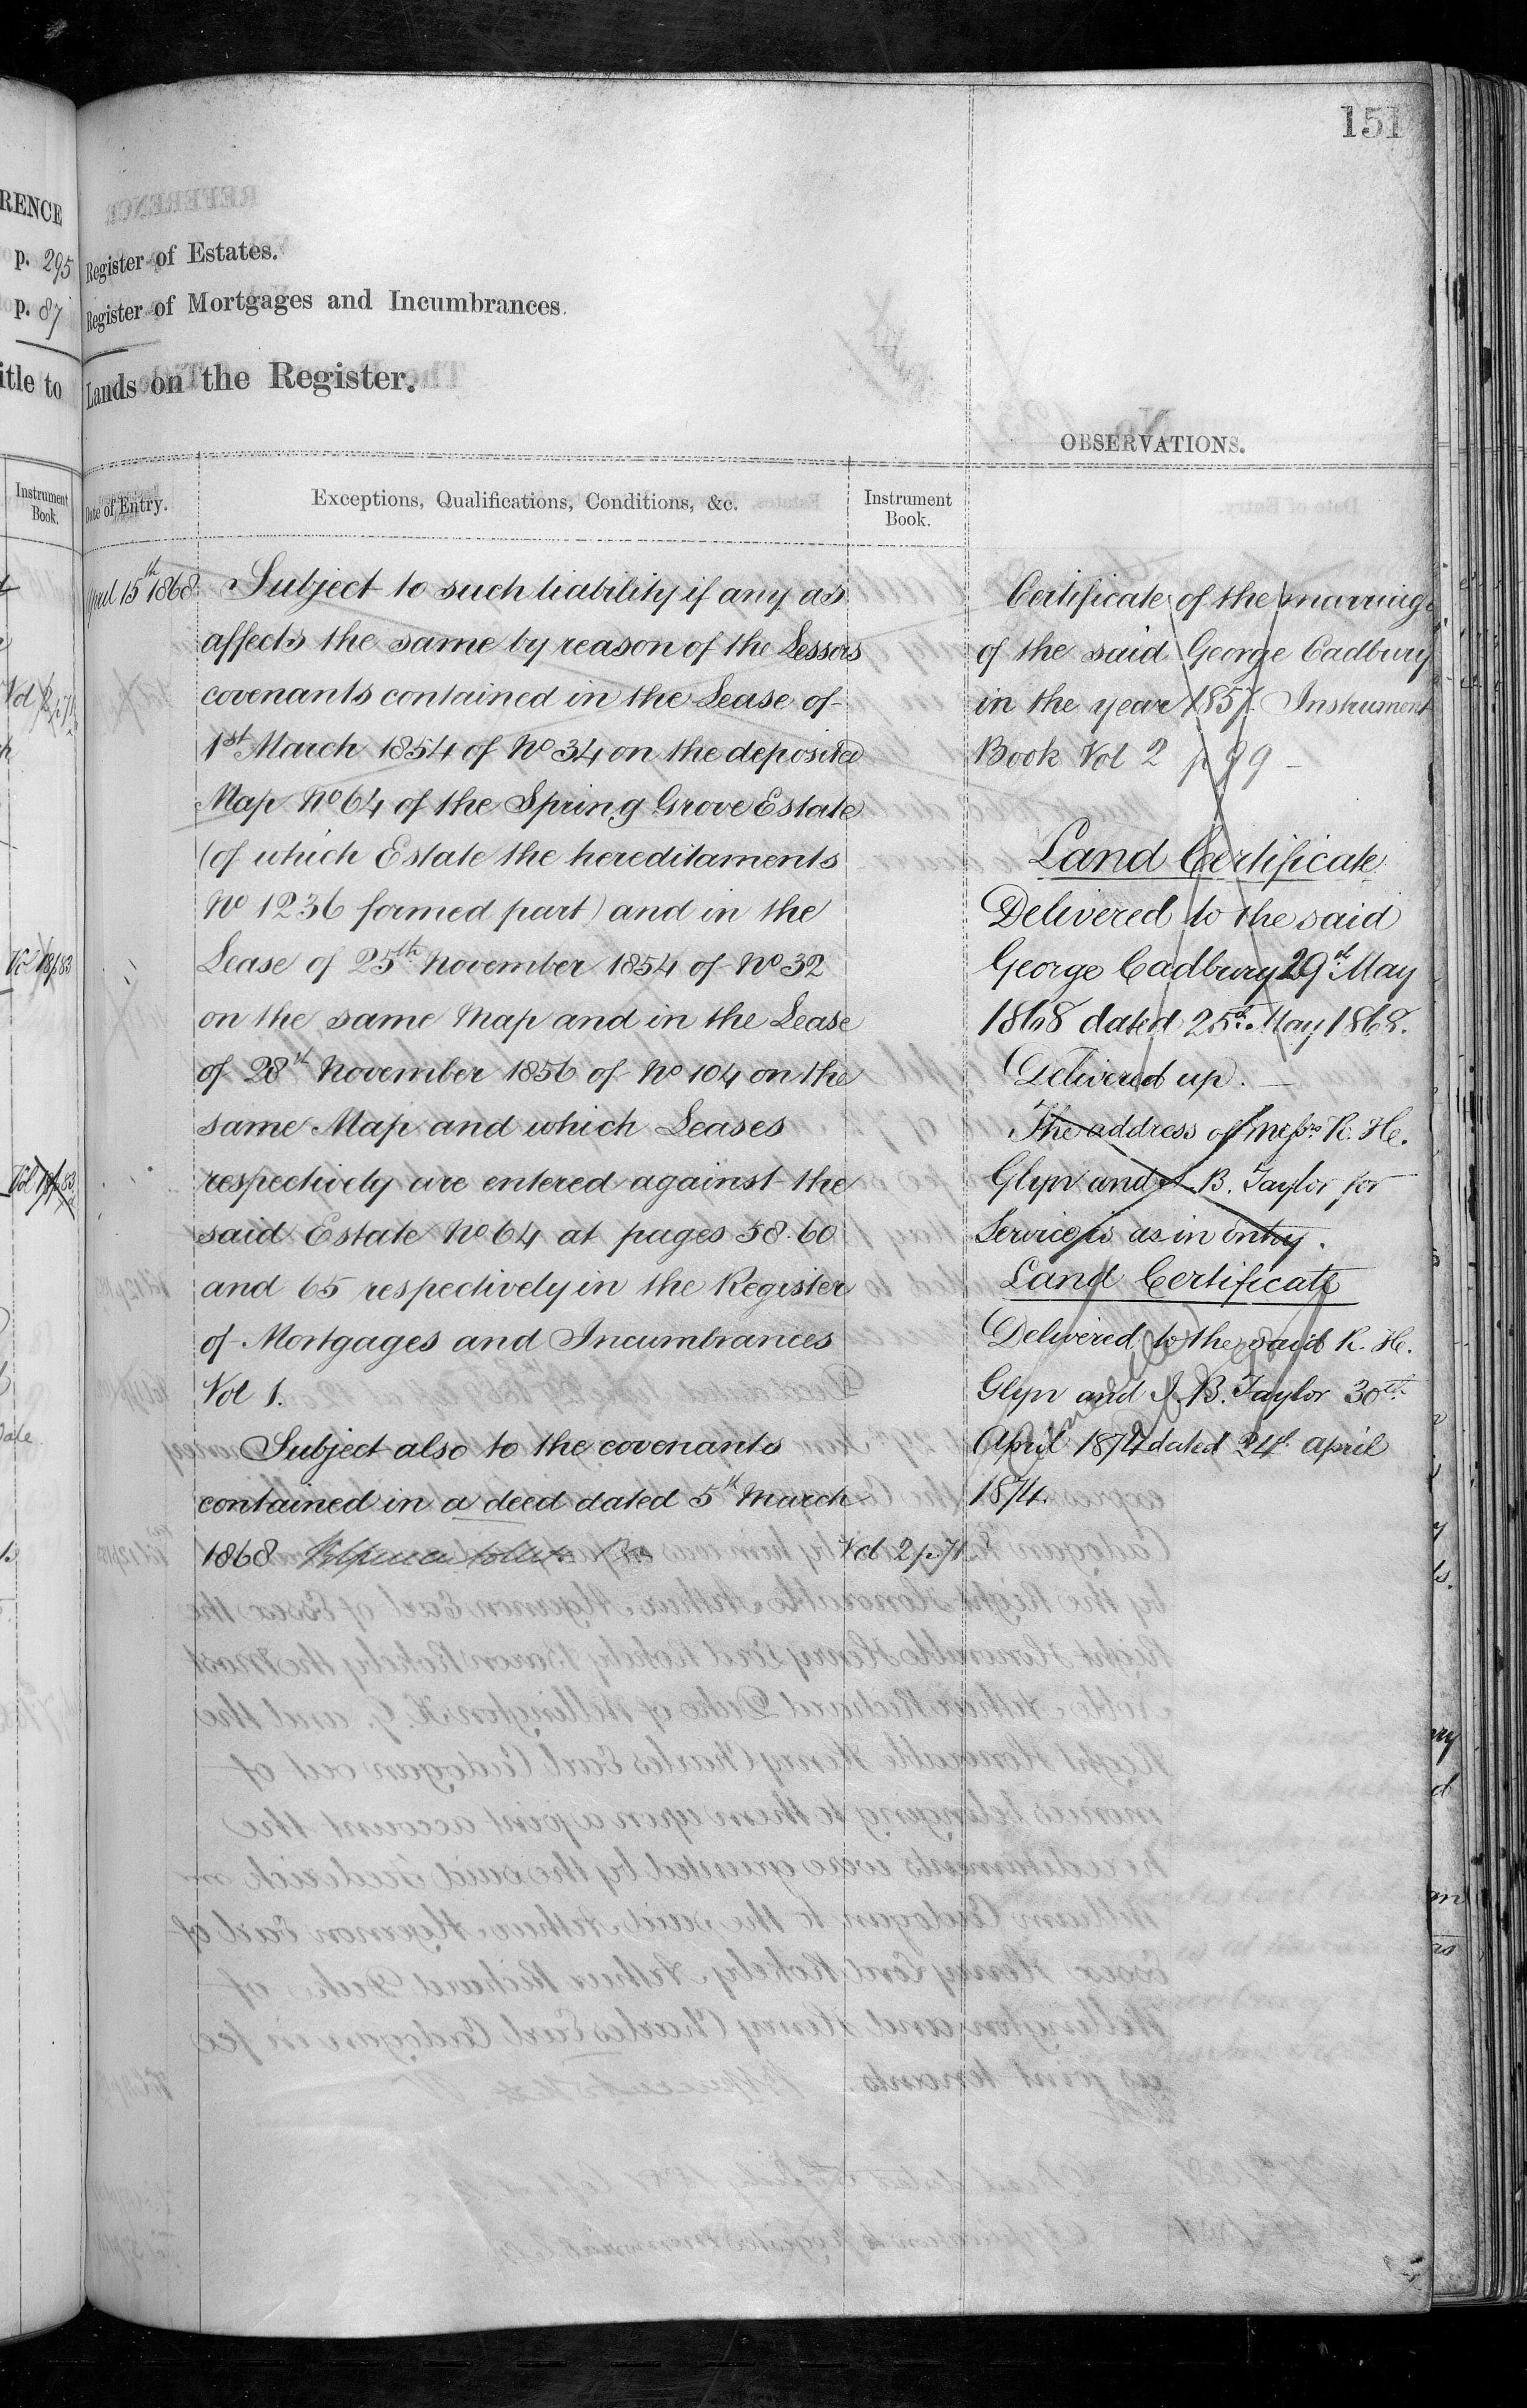 151
RENCE
p. 295
p. 87
itle to
Instrument
Book.
Register of Estates.
Register of Mortgages and Incumbrances.
Lands on the Register.
OBSERVATIONS.
Date of Entry.
Exceptions, Qualifications, Conditions, &c.
Instrument
Book.
April 15th 1868
Subject to such liability if any as
affects the same by reason of the Lessors
covenants contained in the Lease of
1st March 1854 of No 34 on the deposited
Map No 64 of the Spring Grove Estate
(of which Estate the hereditaments
No 1236 formed part) and in the
Lease of 25th November 1854 of No 32
on the same Map and in the Lease
of 28th November 1856 of No 104 on the
same Map and which Leases
respectively are entered against the
said Estate No 64 at pages 58. 60
and 65 respectively in the Register
of Mortgages and Incumbrances
Vol 1.
Subject also to the covenants
contained in a deed dated 5th March
1868
Vol 2 p. 71
Certificate of the marriage
of the said George Cadbury
in the year 1857. Instrument
Book Vol 2 p 99 -
Land Certificate
Delivered to the said
George Cadbury 29th May
1868 dated 25th May 1868.
Delivered up. -
The address of Messrs R. H.
Glyn and I. B. Taylor for
Service is as in Entry.
Land Certificate
Delivered to the said R. H.
Glyn and I. B. Taylor 30th
April 1874 dated 24th April
1874.